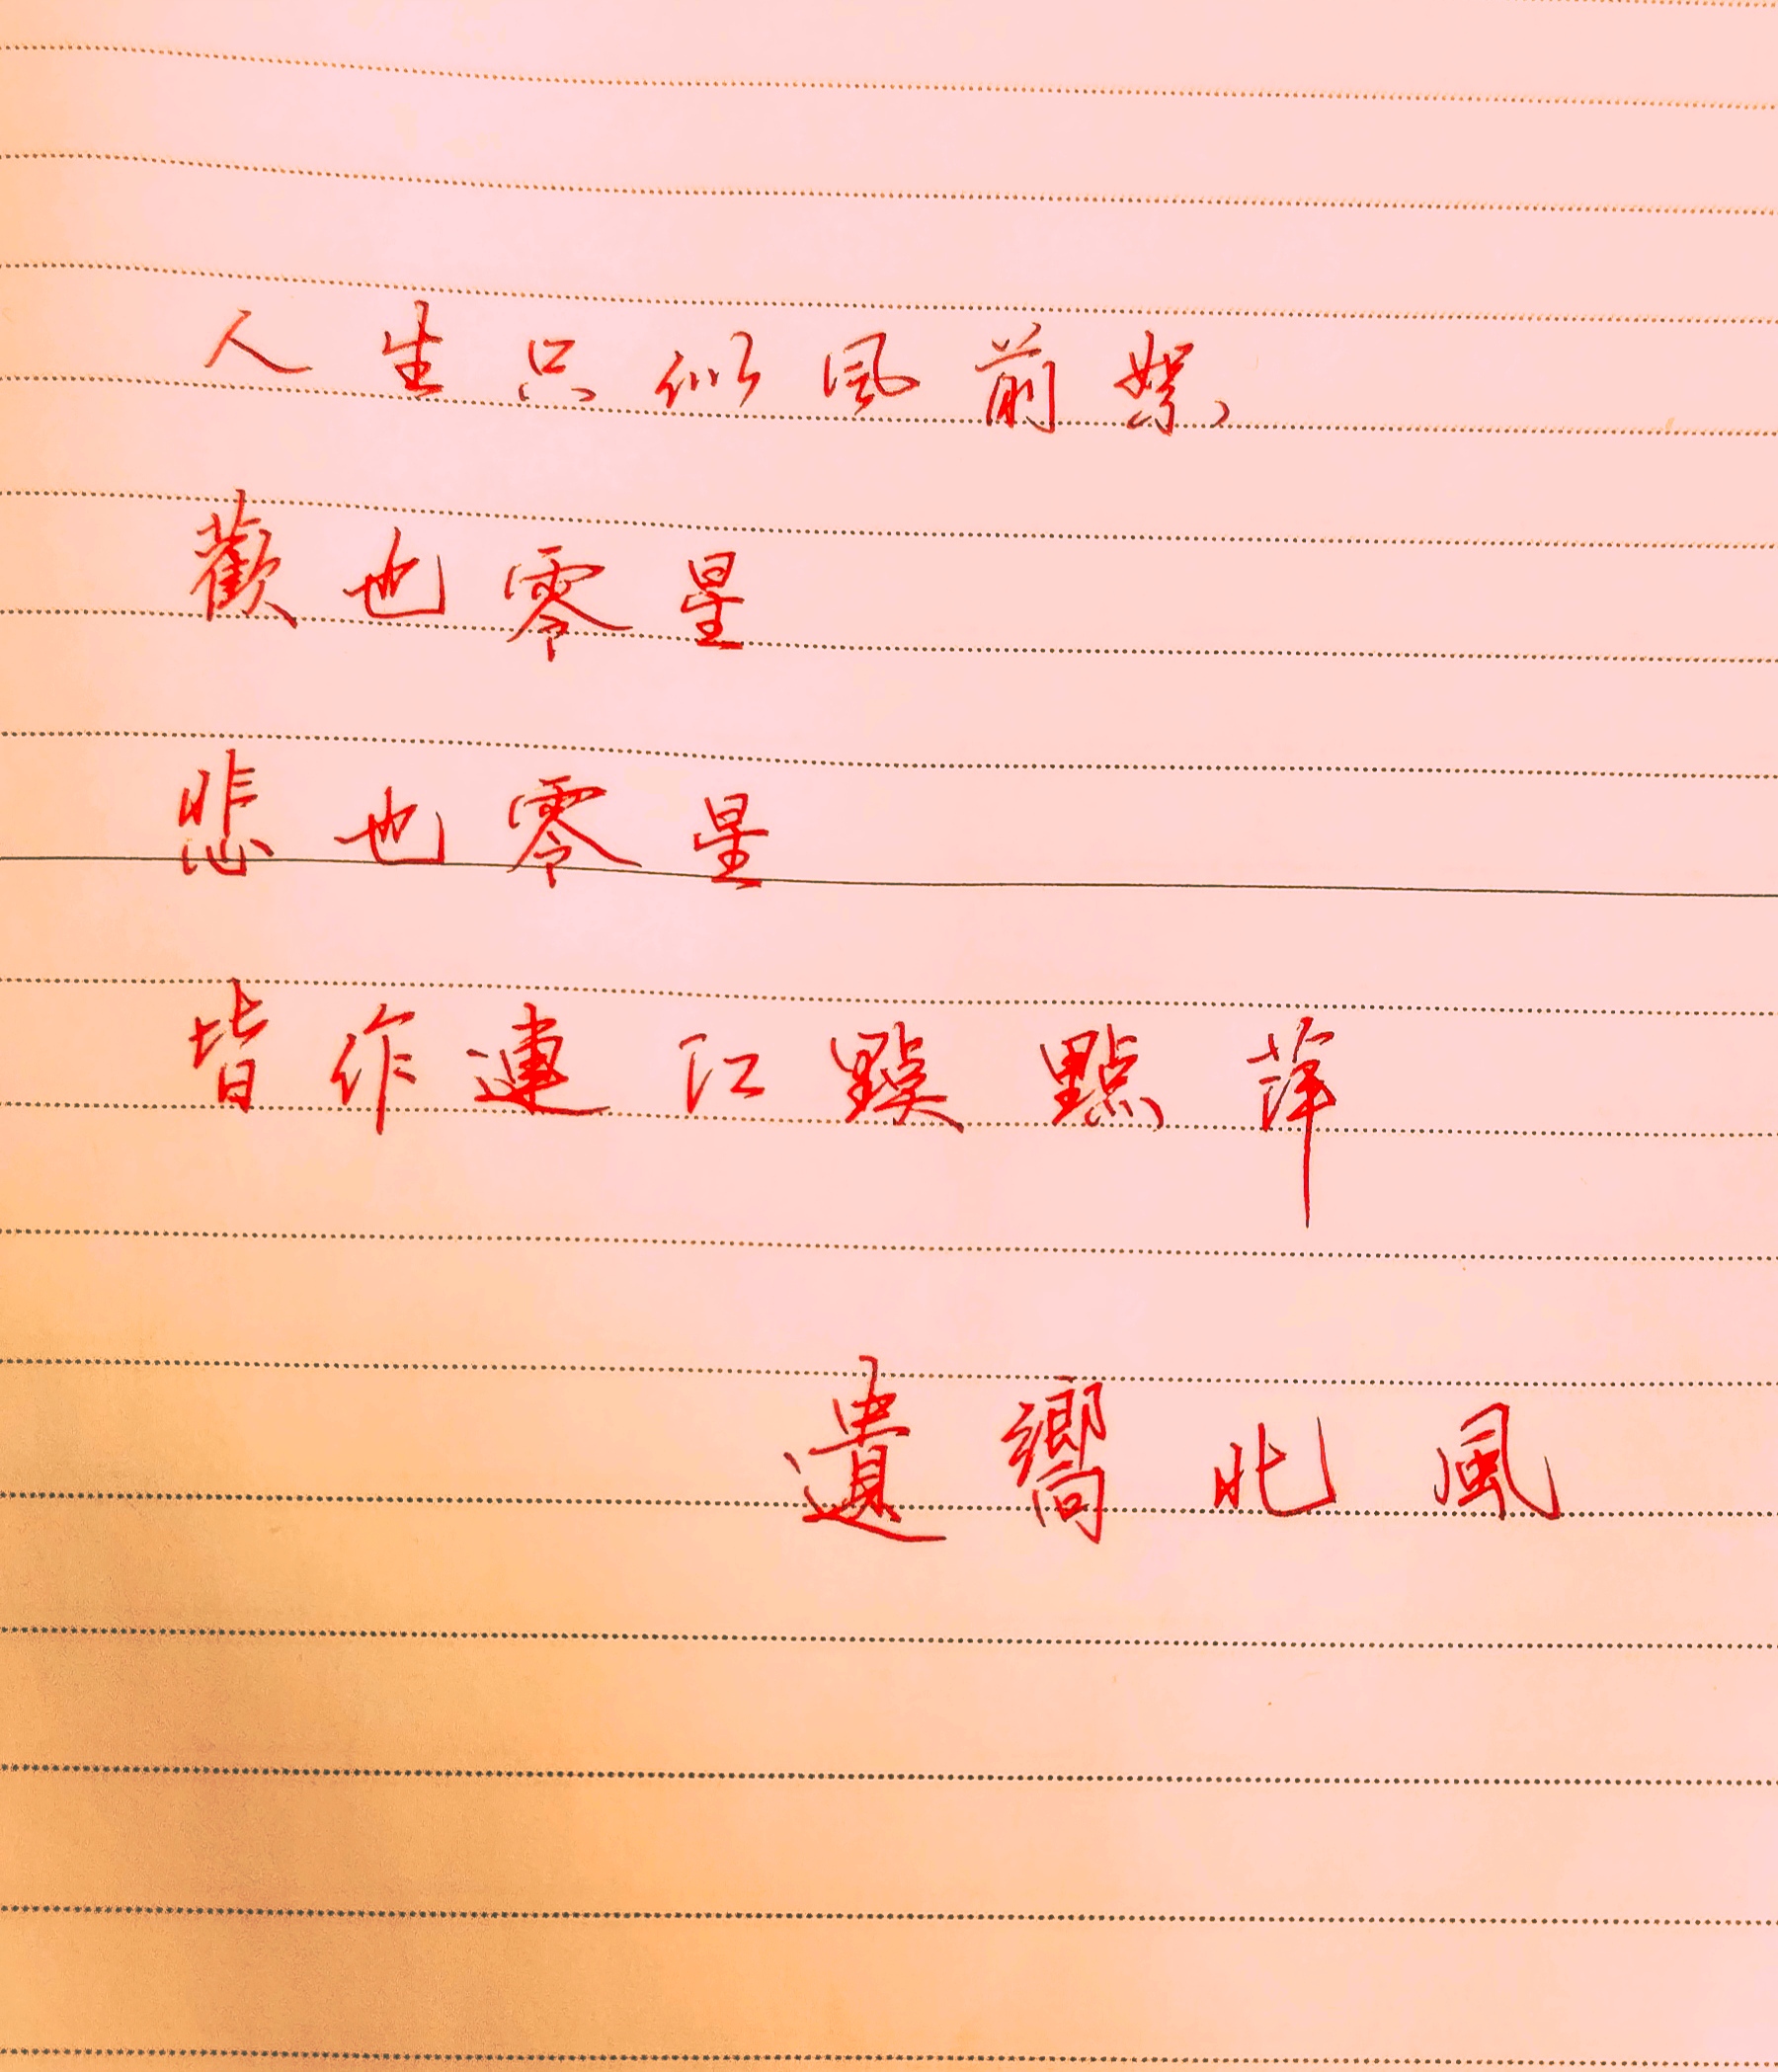 人生只似風前絮，
歡也零星
悲也零星
皆作連江點點萍
遺嚮北風